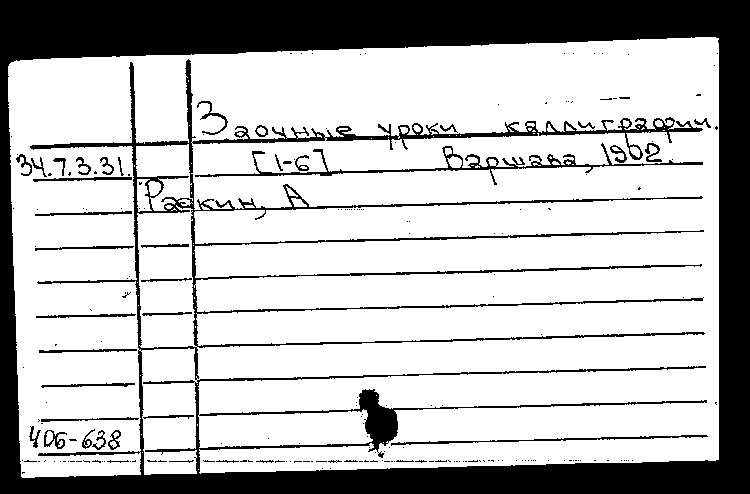 Заочные уроки каллиграфии.
34.7.3.31. [1-6] Варшава, 1902.
Раскин, А
406-638